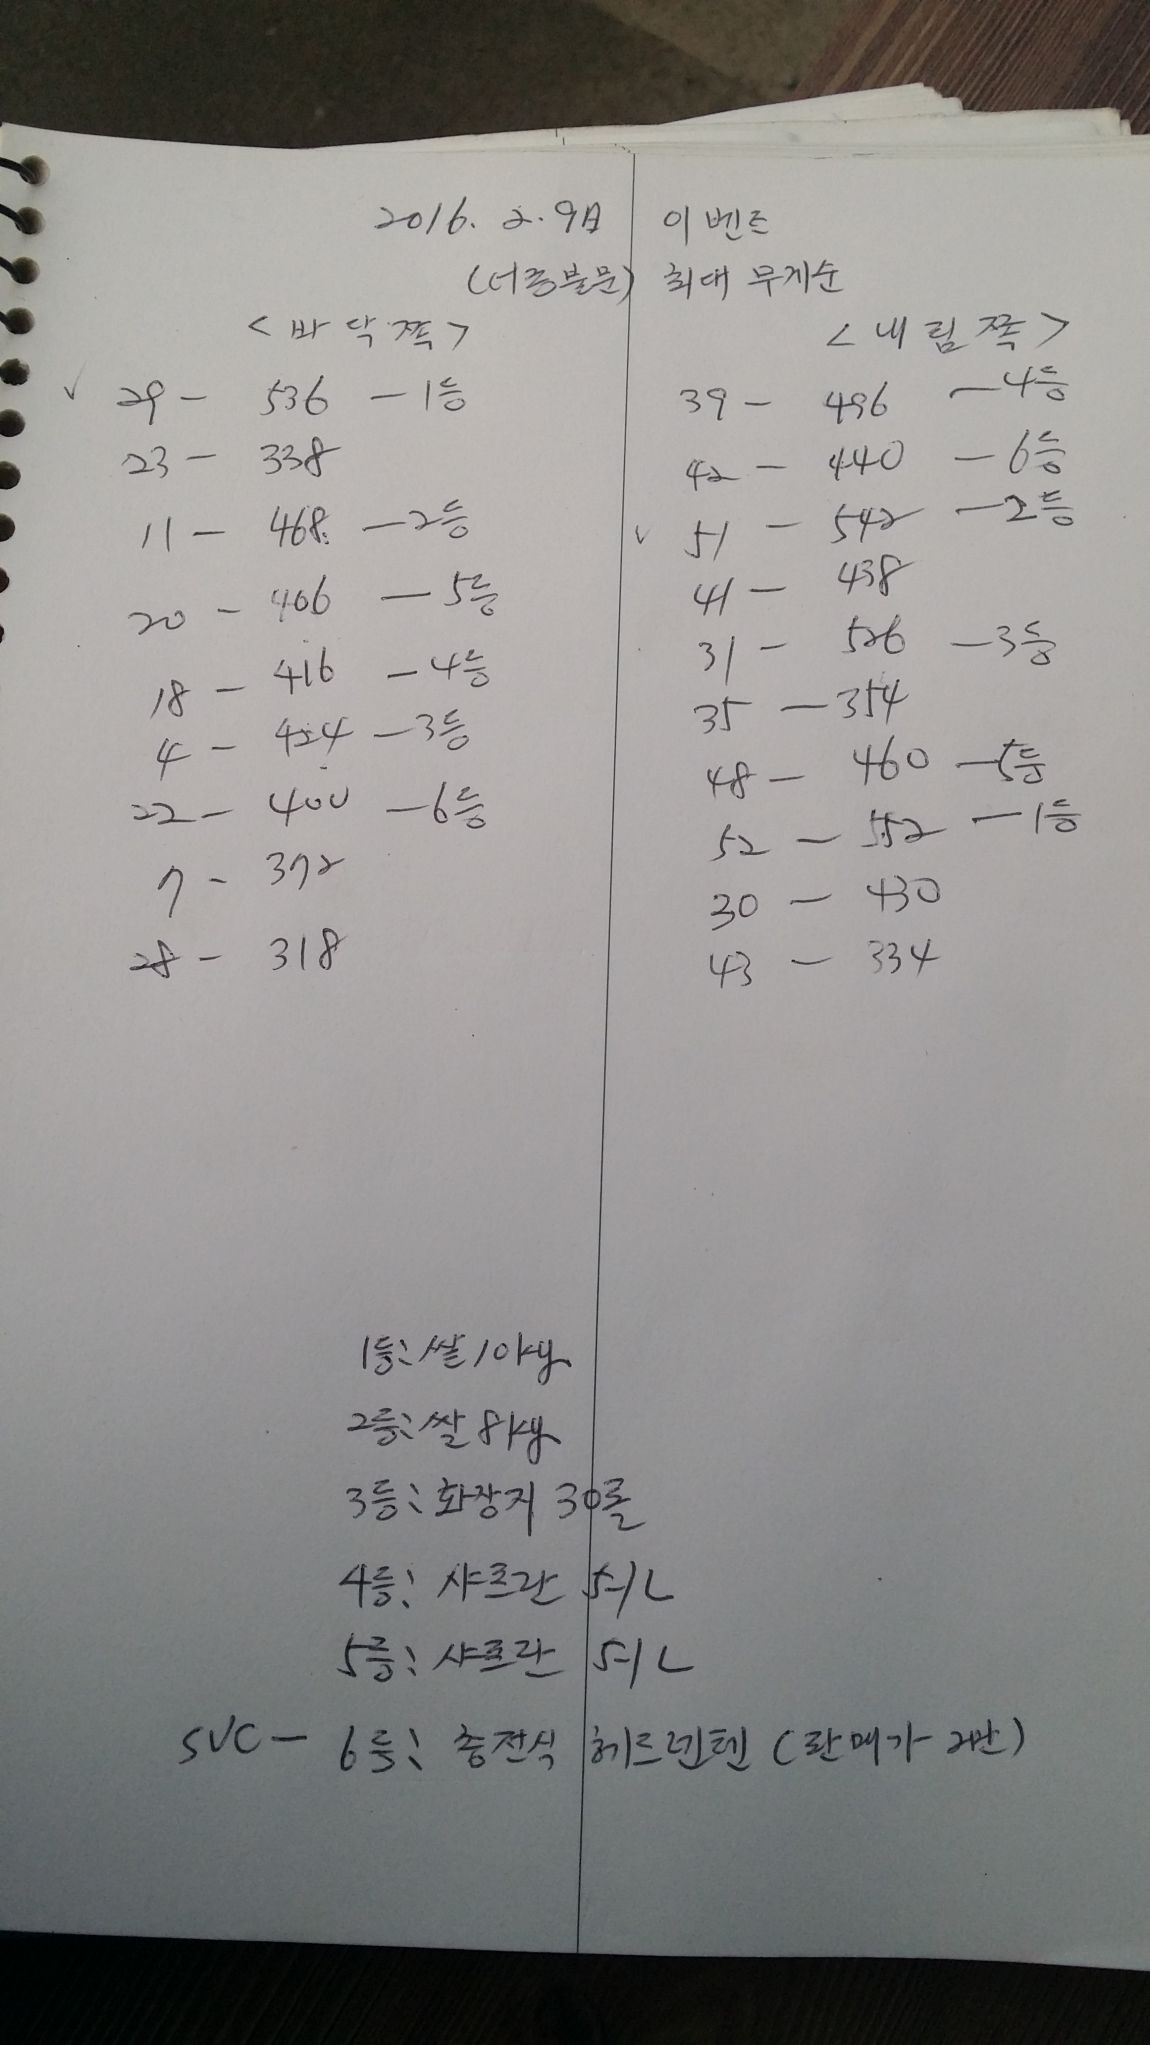 2016. 2. 9日 이벤트
(어종불문) 최대 무게순
<바닥쪽>
29 - 536 - 1등
23 - 338
11 - 468 - 2등
20 - 406 - 5등
18 - 416 - 4등
4 - 424 - 3등
22 - 400 - 6등
7 - 372
28 - 318
<내림쪽>
39 - 496 - 4등
42 - 440 - 6등
51 - 542 - 2등
41 - 438
31 - 526 - 3등
35 - 354
48 - 460 - 5등
52 - 552 - 1등
30 - 430
43 - 334
1등: 쌀 10kg
2등: 쌀 8kg
3등: 화장지 30롤
4등: 샤프란 5-1L
5등: 샤프란 5-1L
SVC - 6등: 충전식 헤드렌텐 (판매가 2만)